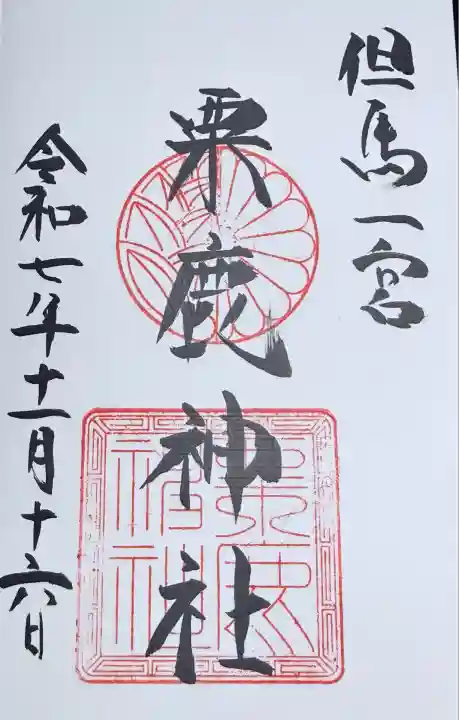 但馬一宮
粟鹿神社
令和七年十一月十六日